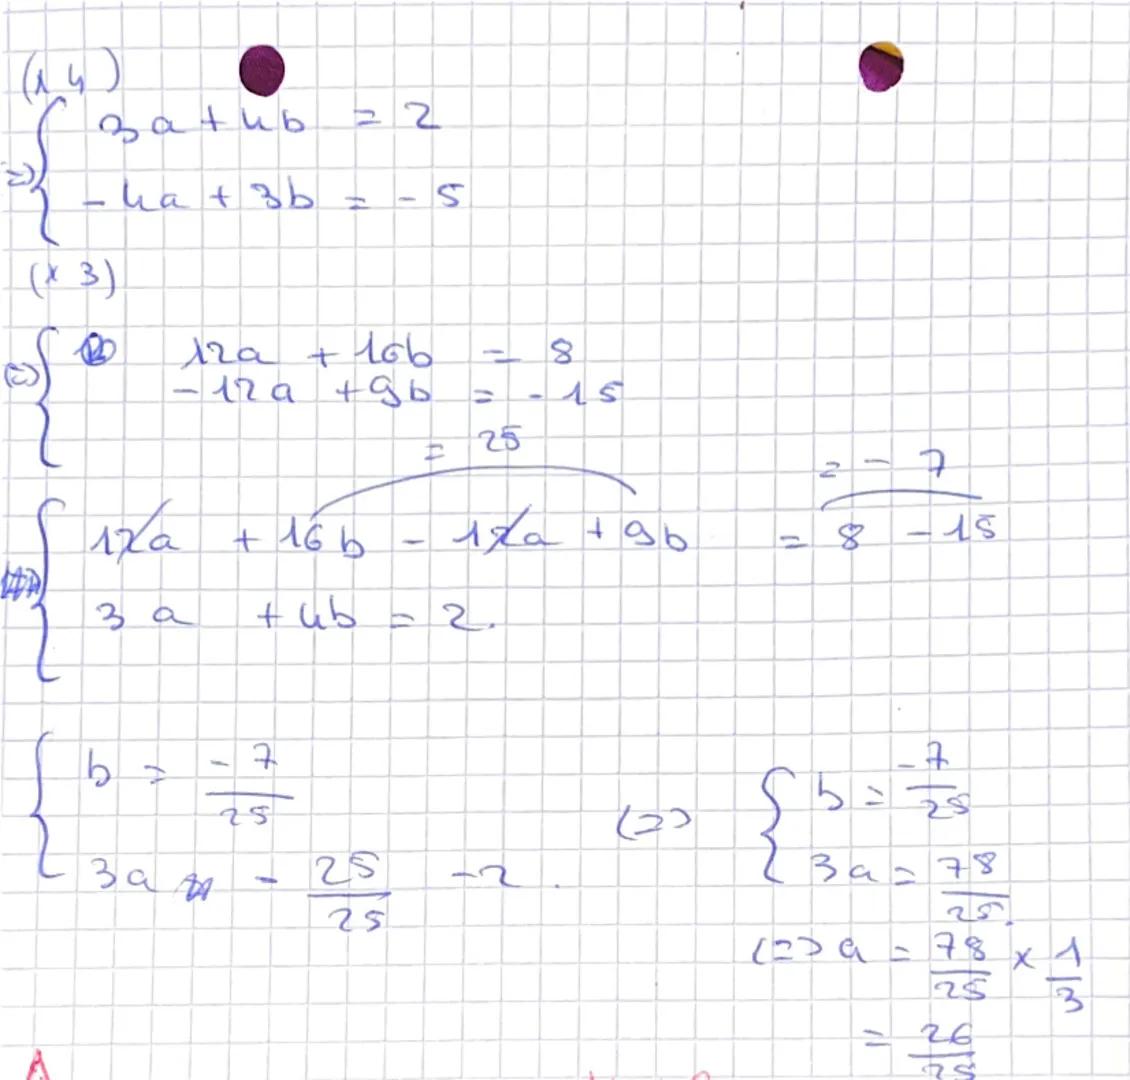 (x 4)
=> { 3a + 4b = 2
-4a + 3b = -5
(x 3)
(=) { 12a + 16b = 8
-12a + 9b = -15
= 25
= -7
{ 12a + 16b - 12a + 9b = 8 - 15
3a + 4b = 2.
{ b = -7/25
3a - 25/25 -2.
(=> { b = -7/25
3a = 78/25.
(=> a = 78/25 x 1/3
= 26/25